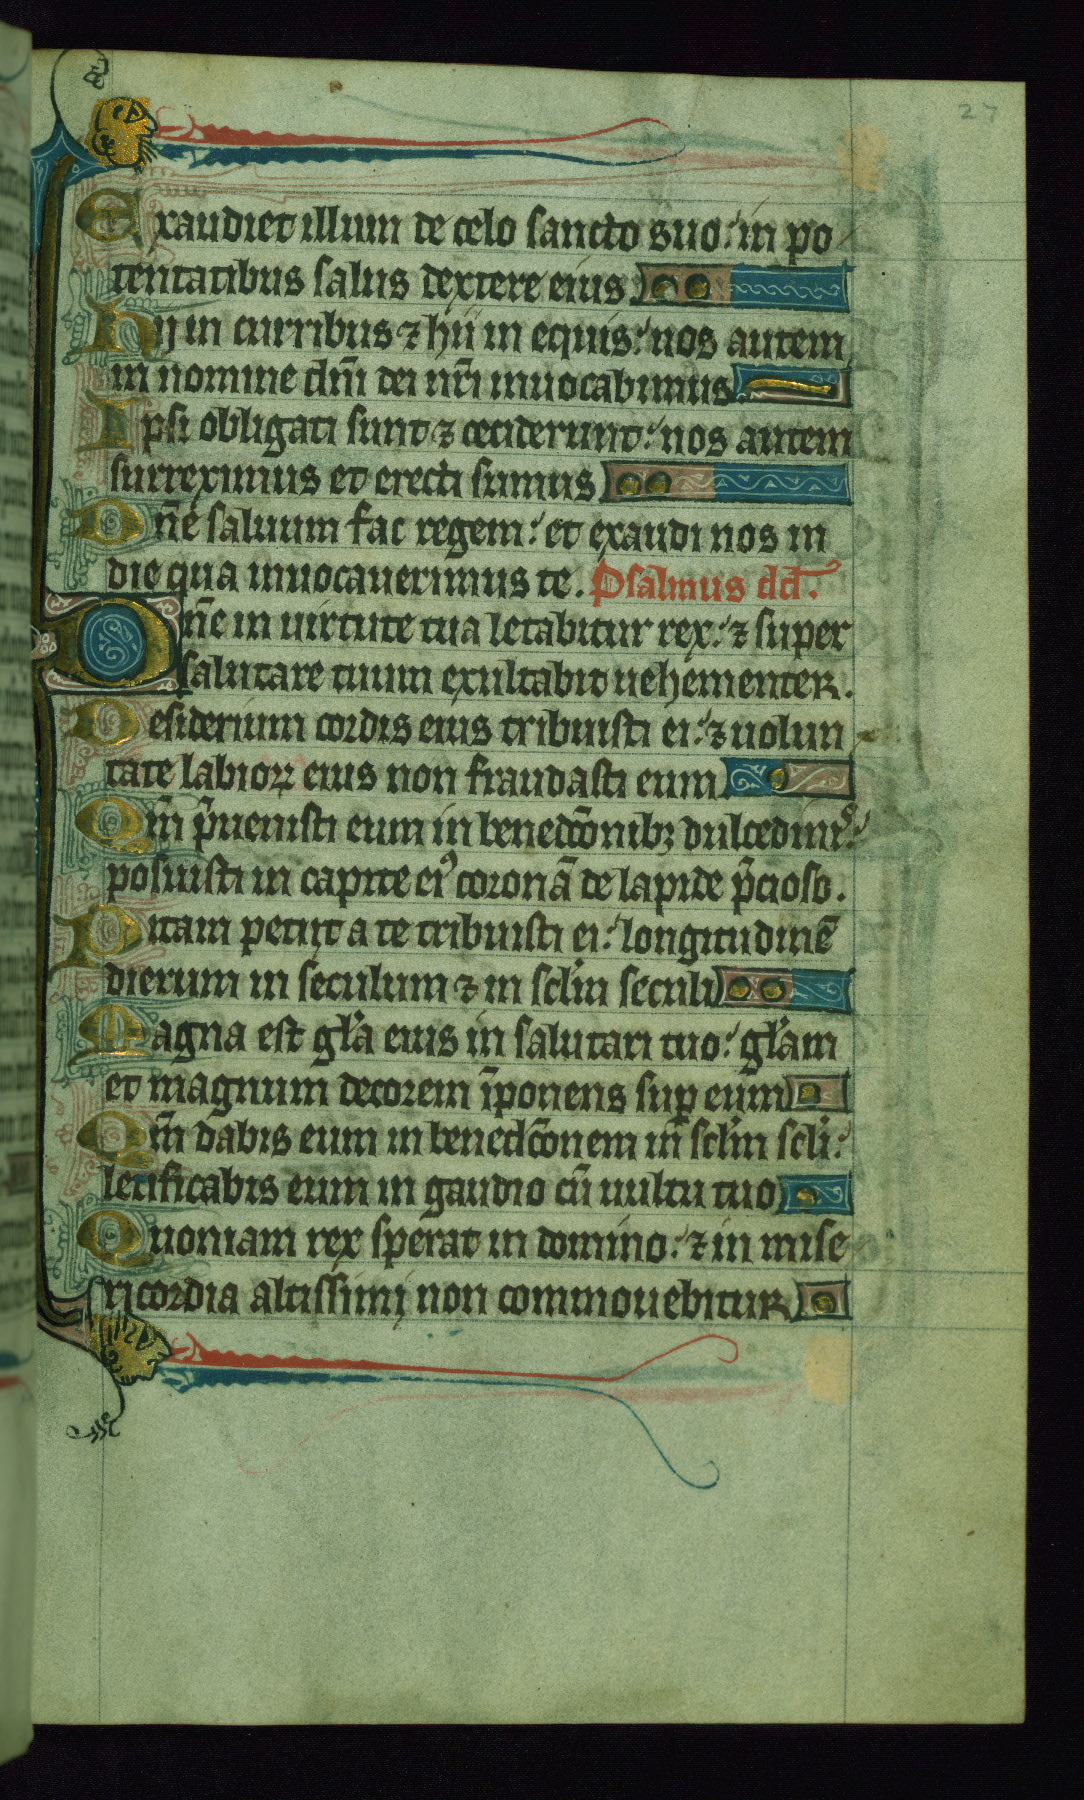 27
Exaudiet illum de celo sancto suo: in po
tentatibus salus dextere eius
Hij in curribus ⁊ hii in equis: nos autem
in nomine dn̄i dei nr̄i inuocabimus
Ipsi obligati sunt ⁊ ceciderunt: nos autem
surreximus et erecti sumus
Dn̄e saluum fac regem: et exaudi nos in
die qua inuocauerimus te. Psalmus dd̄.
Dn̄e in uirtute tua letabitur rex: ⁊ super
salutare tuum exultabit uehementer.
Desiderium cordis eius tribuisti ei: ⁊ uolun
tate labioꝝ eius non fraudasti eum
Qm̄ p̄uenisti eum in benedc̄onibꝫ dulcedinis:
posuisti in capite eiꝰ coronā de lapide p̄cioso.
Vitam petijt a te tribuisti ei: longitudinē
dierum in seculum ⁊ in sclm̄ seculi
Magna est gl̄a eius in salutari tuo: gl̄am
et magnum decorem īpones suꝑ eum
Qm̄ dabis eum in benedc̄onem in sclm̄ scl̄i:
letificabis eum in gaudio cū uultu tuo
Quoniam rex sperat in domino: ⁊ in mise
ricordia altissimi non commouebitur